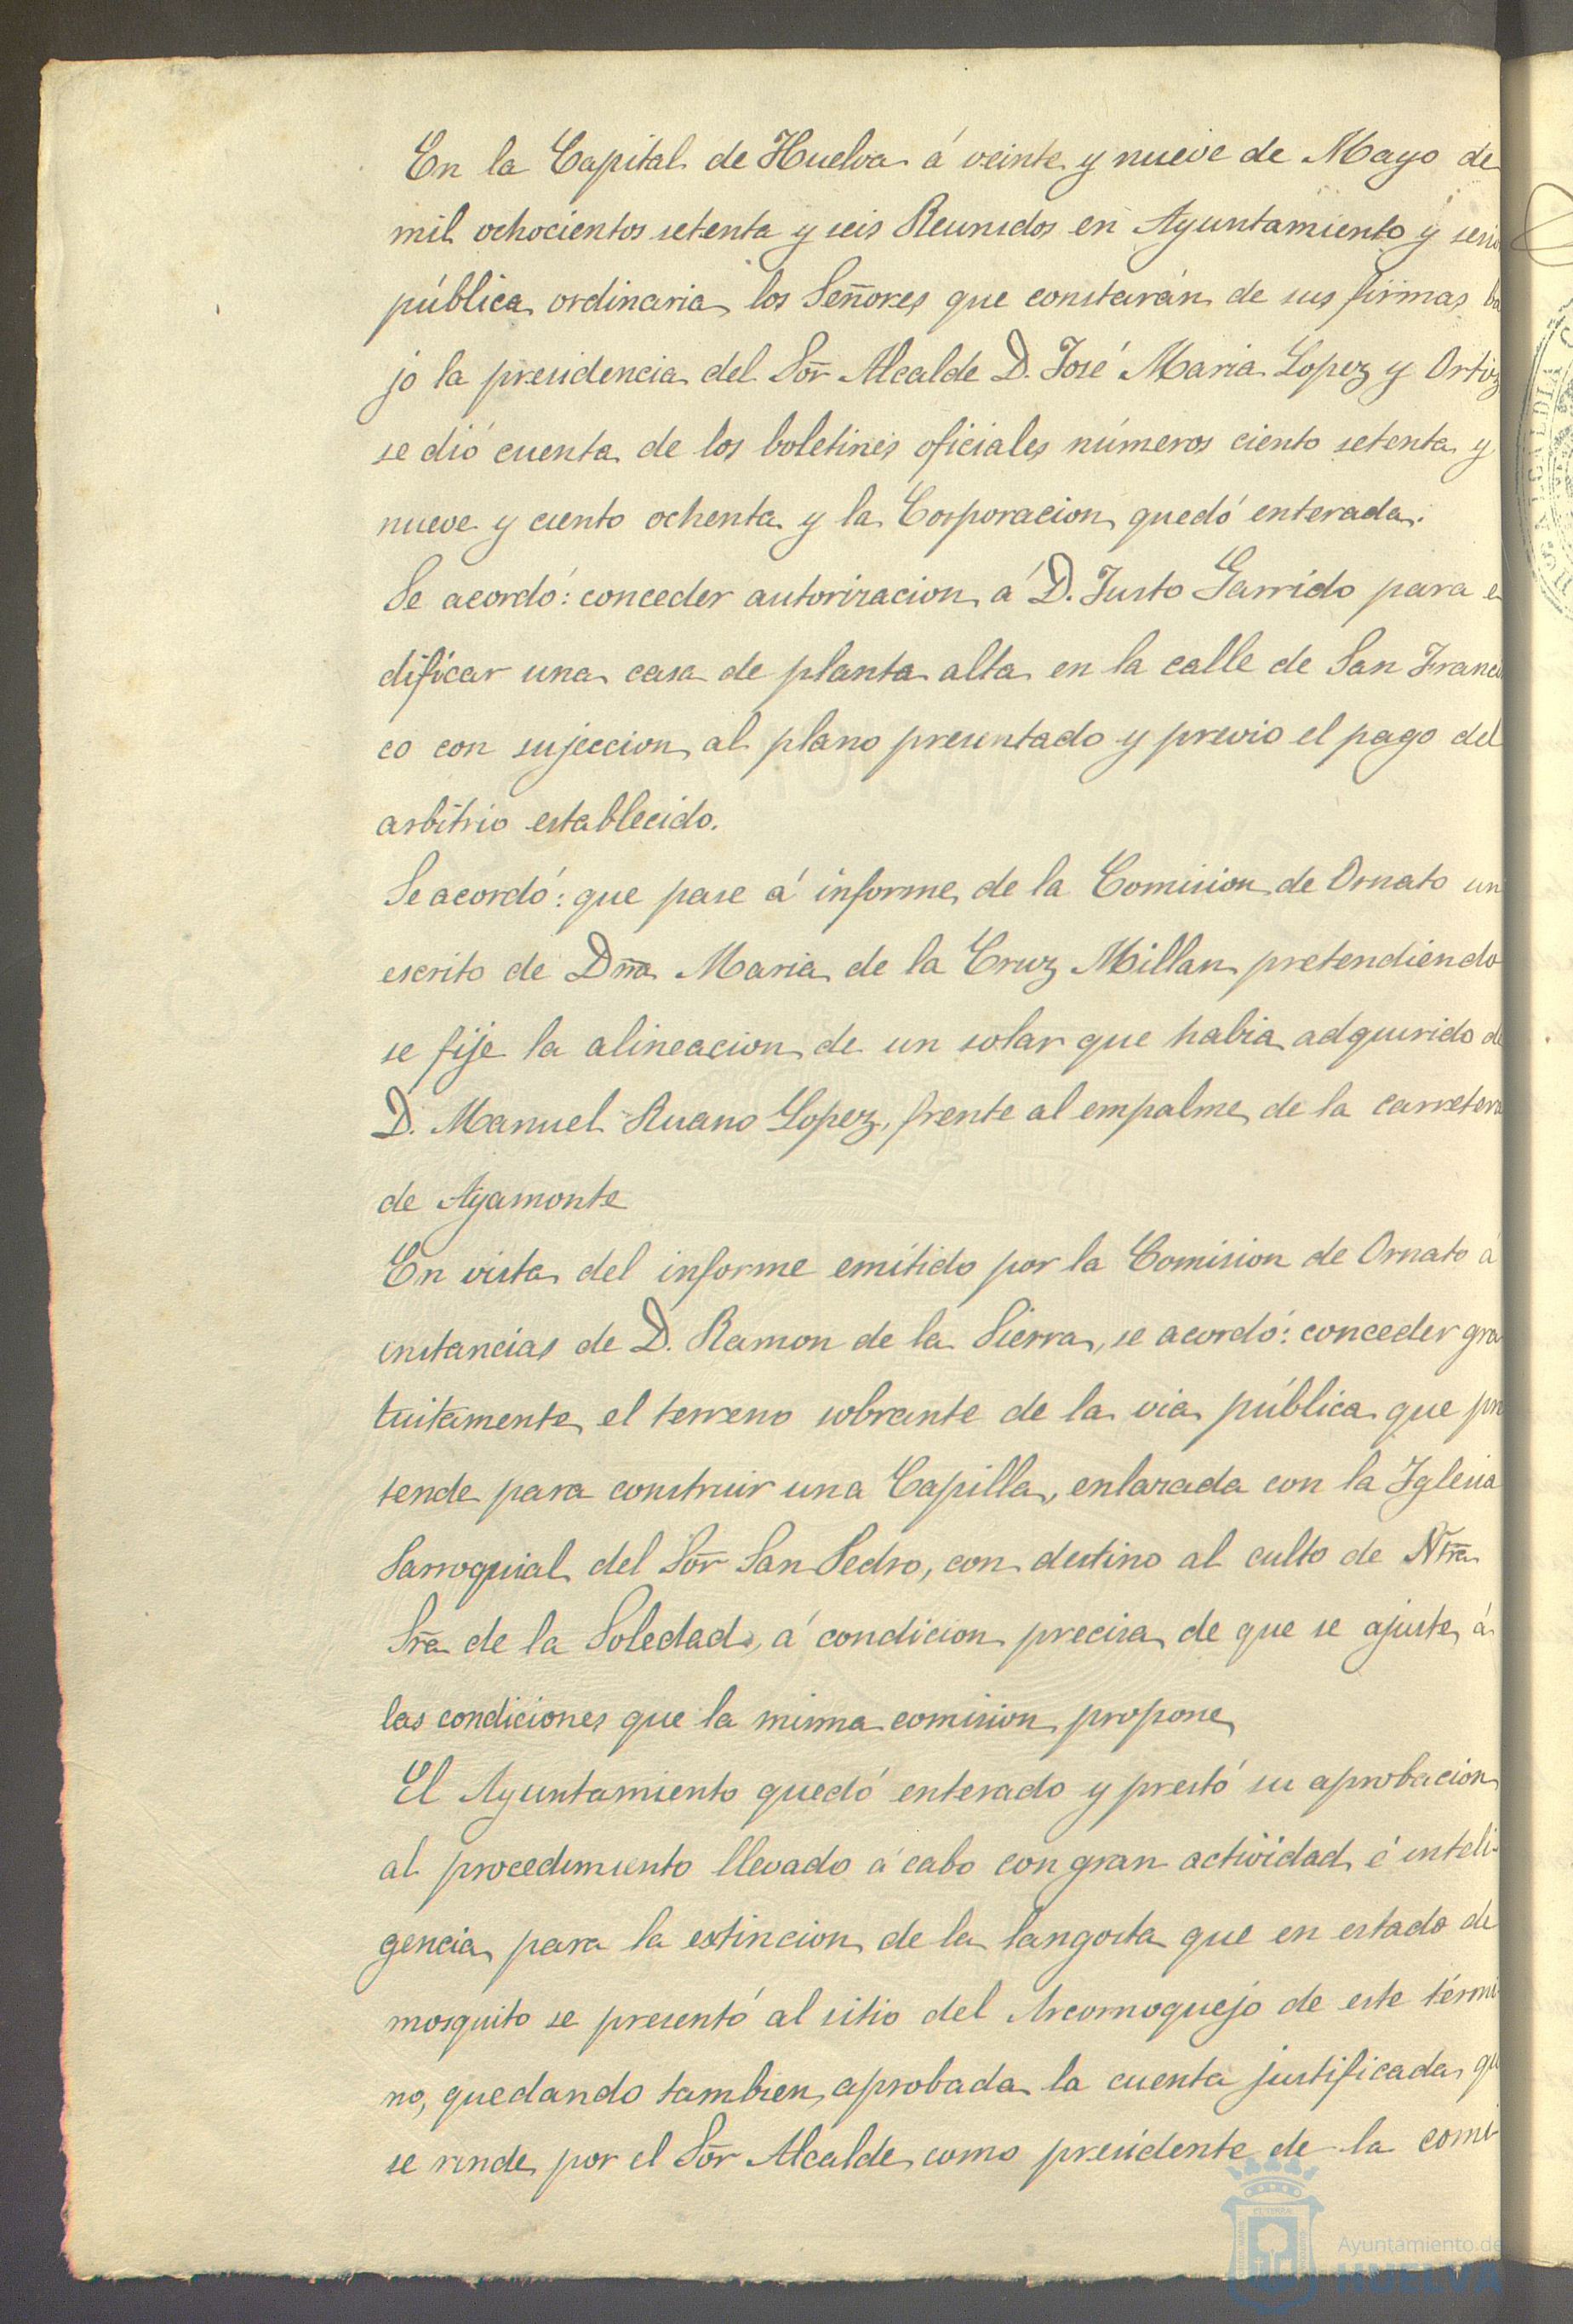 En la Capital de Huelva á veinte y nueve de Mayo de
mil ochocientos setenta y seis Reunidos en Ayuntamiento y
pública ordinaria los Señores que constarán de sus firmas ba
jo la presidencia del Sor Alcalde D. José Maria Lopez y Ortiz
se dió cuenta de los boletines oficiales números ciento setenta y
nueve y ciento ochenta y la Corporacion quedó enterada.
Se acordó: conceder autorizacion á D. Justo Garrido para e
dificar una casa de planta alta en la calle de San Francis
co con sujeccion al plano presentado y previo el pago del
arbitrio establecido.
Se acordó: que pase á informe de la Comision de Ornato un
escrito de Dña Maria de la Cruz Millan pretendiendo
se fije la alineacion de un solar que habia adquirido de
D. Manuel Ruano Lopez, frente al empalme de la carretera
de Ayamonte
En vista del informe emitido por la Comision de Ornato á
instancias de D. Ramon de la Sierra, se acordó: conceder gra
tuitamente el terreno sobrante de la via pública que pre
tende para construir una Capilla, enlazada con la Iglesia
Parroquial del Sor San Pedro, con destino al culto de Ntra
Sra de la Soledad, á condicion precisa de que se ajuste á
las condiciones que la misma comision propone
El Ayuntamiento quedó enterado y prestó su aprobacion
al procedimiento llevado á cabo con gran actividad é inteli-
gencia para la estincion de la langosta que en estado de
mosquito se presentó al sitio del Arcornoquejo de este térmi
no, quedando tambien aprobada la cuenta justificada que
se rinde por el Sor Alcalde como presidente de la comi
Ayuntamiento de
HUELVA